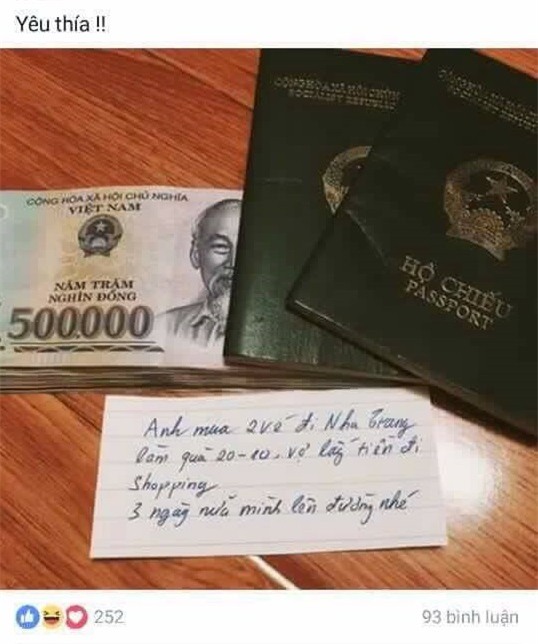 Yêu thía !!
CỘNG HÒA XÃ HỘI CHỦ NGHĨA
VIỆT NAM
NĂM TRĂM
NGHÌN ĐỒNG
500.000
CỘNG HÒA XÃ HỘI CHỦ
SOCIALIST REPUBLIC
HỘ CHIẾU
PASSPORT
Anh mua 2 vé đi Nha Trang
làm quà 20-10. vợ lấy tiền đi
Shopping
3 ngày nữa mình lên đường nhé
252
93 bình luận